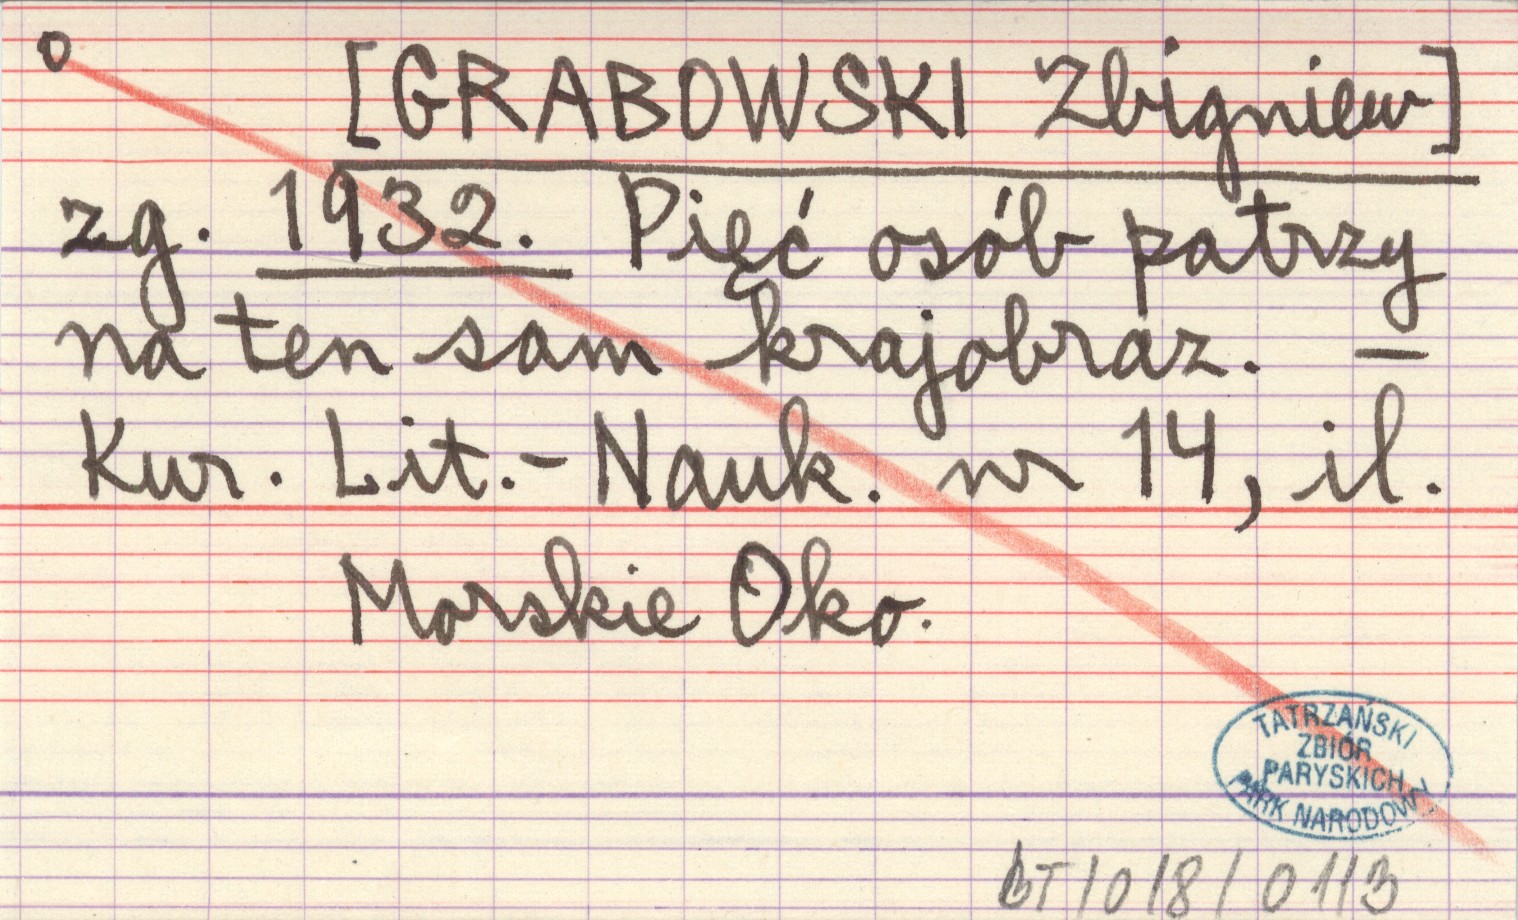 o
[GRABOWSKI Zbigniew]
zg. 1932. Pięć osób patrzy
na ten sam krajobraz. –
Kur. Lit.-Nauk. nr 14, il.
Morskie Oko.
TATRZAŃSKI
ZBIÓR
PARYSKICH
PARK NARODOWY
BT/018/0113